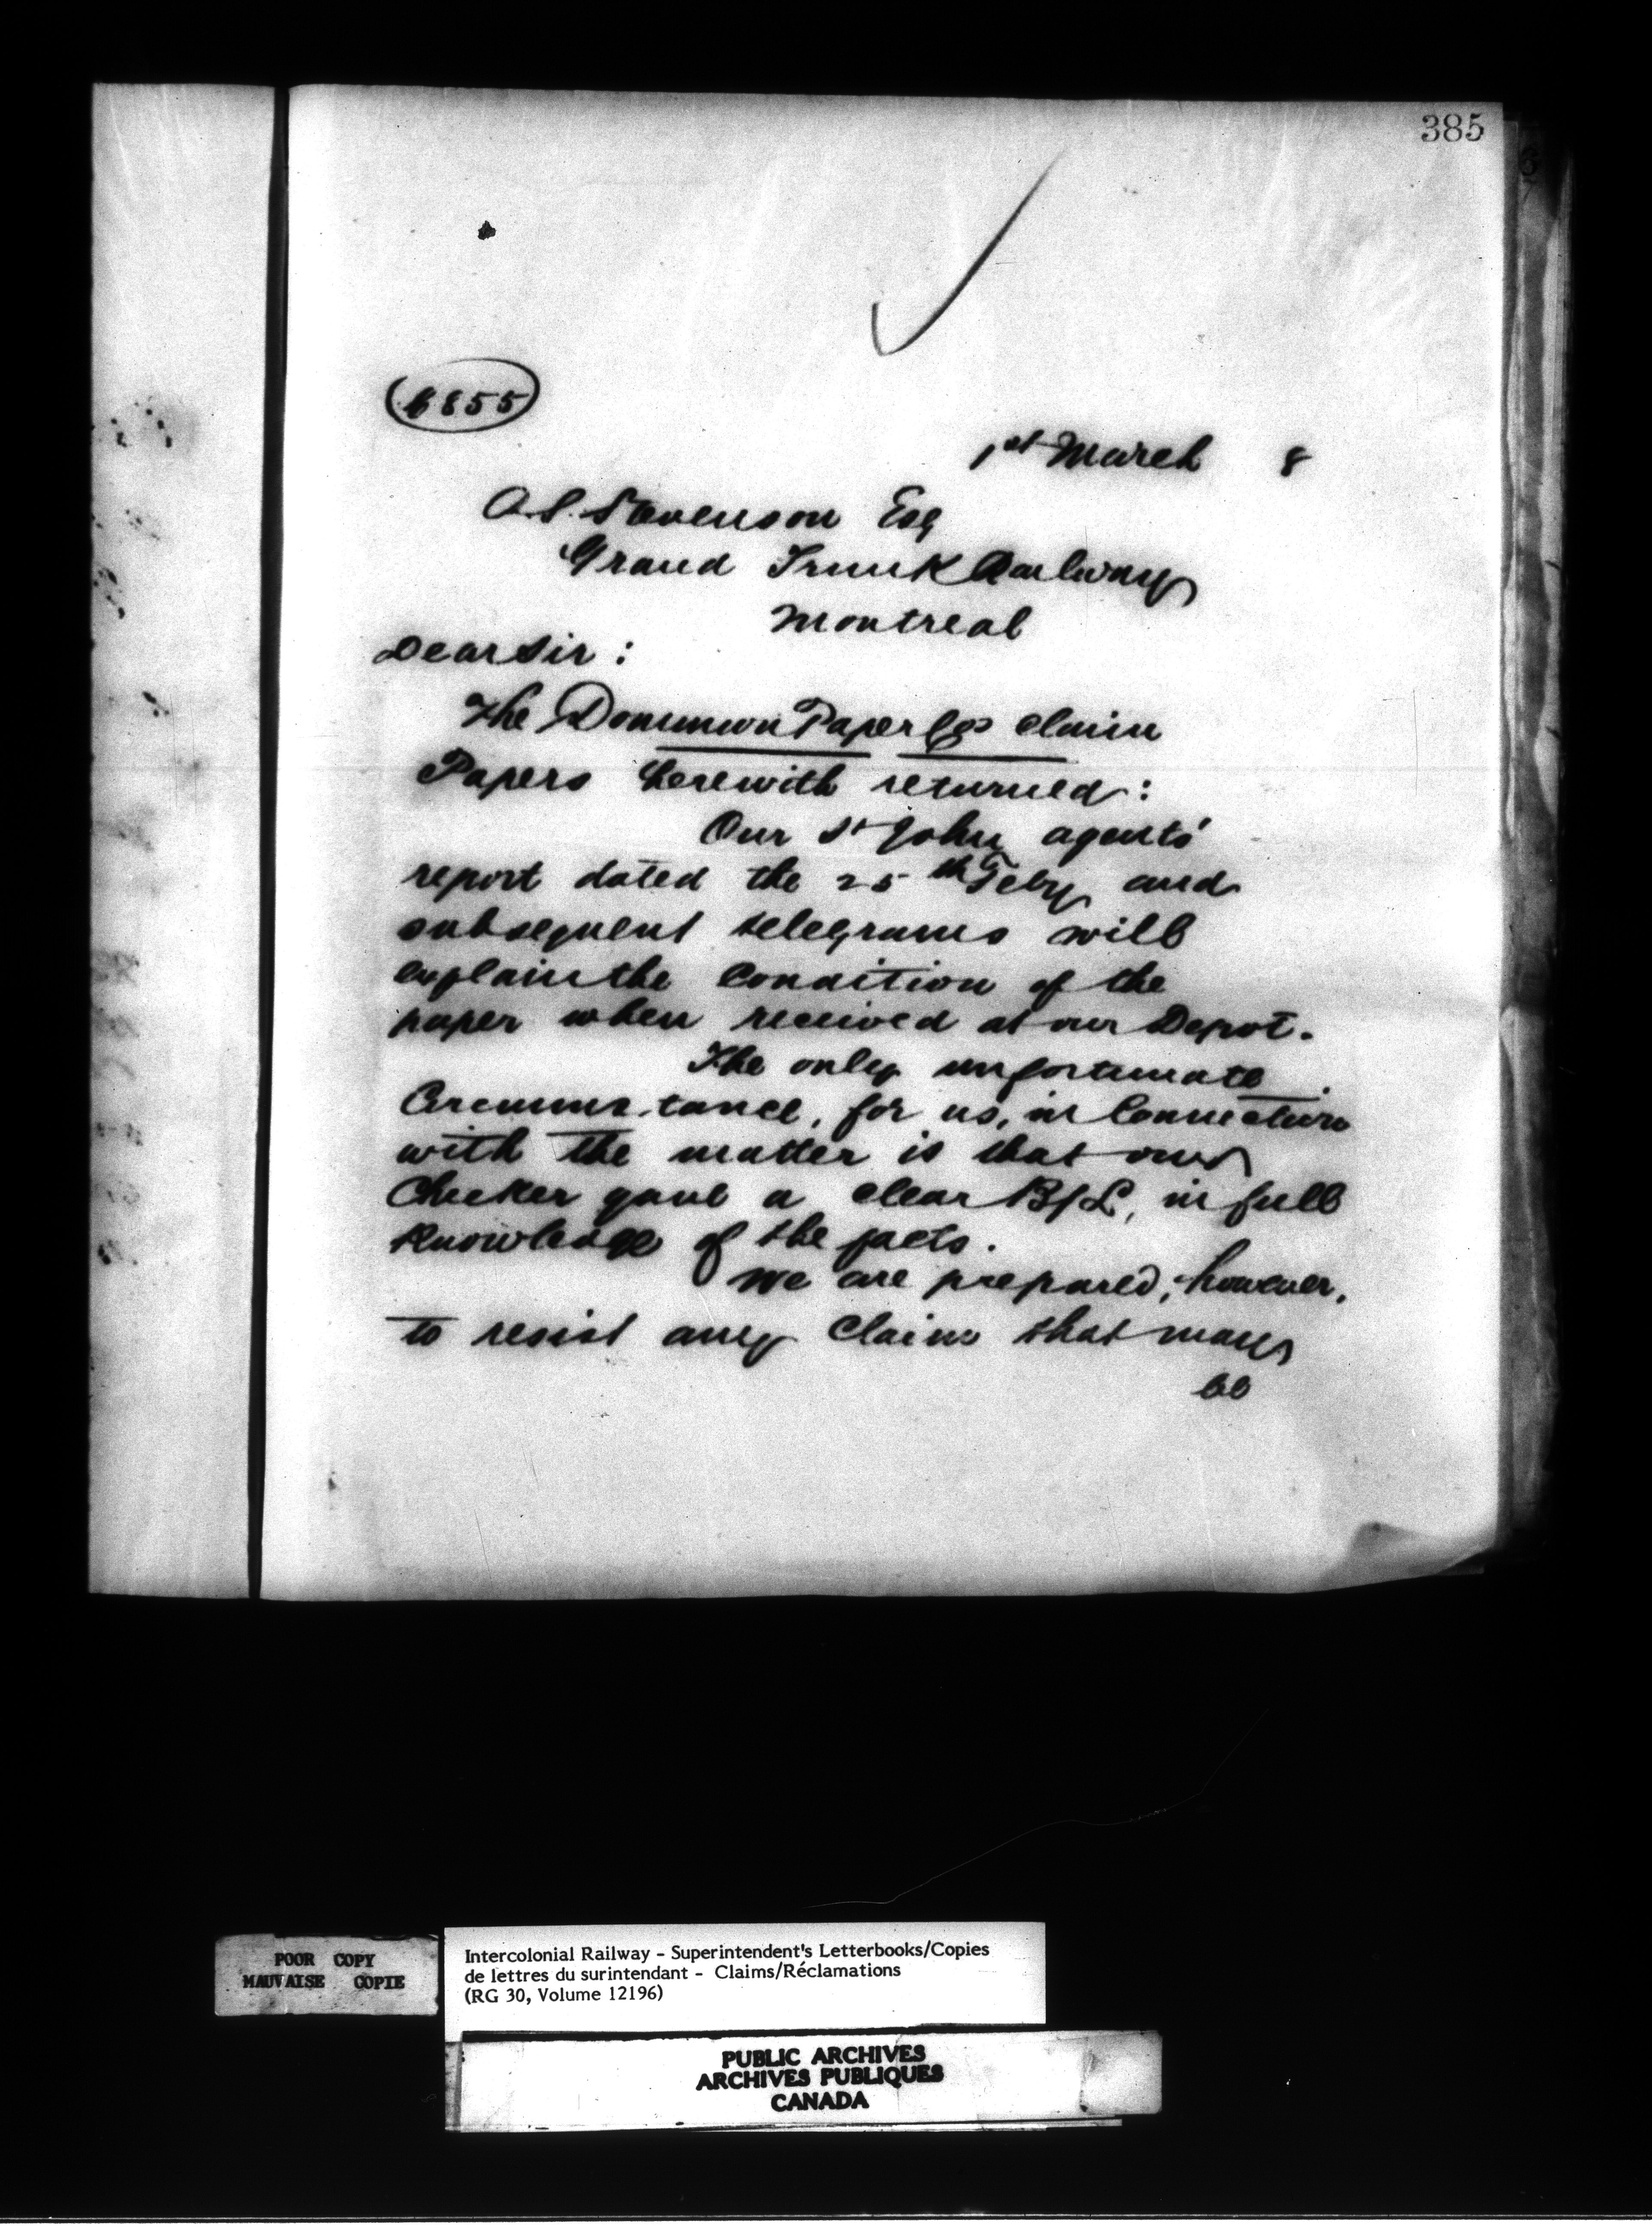 385
6855
1st March 8
A.S. Stevenson Esq
Grand Trunk Railway
Montreal
Dear Sir :
The Dominion Paper Cos claim
Papers herewith returned :
Our St John agents'
report dated the 25th Feby and
subsequent telegrams will
explain the Condition of the
paper when received at our Depot.
The only unfortunate
Circumstance, for us, in Connection
with the matter is that our
Checker gave a clear B/L, in full
knowledge of the facts.
We are prepared, however,
to resist any Claim that may
be
POOR COPY
MAUVAISE COPIE
Intercolonial Railway - Superintendent's Letterbooks/Copies
de lettres du surintendant - Claims/Réclamations
(RG 30, Volume 12196)
PUBLIC ARCHIVES
ARCHIVES PUBLIQUES
CANADA